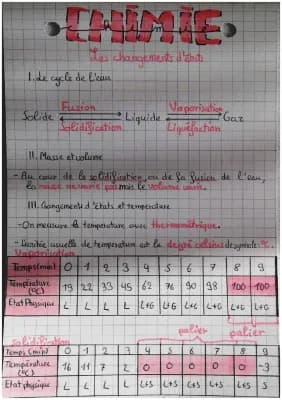 CHIMIE
Les changements d'états
I. Le cycle de l'eau
Fusion Vaporisation
Solide Liquide Gaz
Solidification Liquéfaction
II. Masse et volume
- Au cour de la solidification ou de la fusion de l'eau,
la masse ne varie pas mais le volume varie.
III. Changements d'états et température
- On mesure la température avec thermométrique.
- L'unitée usuelle de température est le degré celsius de symbole °C.
Vaporisation
Temps (min) 0 1 2 3 4 5 6 7 8 9
Température (°C) 19 22 33 45 62 76 90 98 100 100
Etat Physique L L L L L+G L+G L+G L+G L+G L+G
palier
Solidification palier
Temps (min) 0 1 2 3 4 5 6 7 8 9
Température (°C) 16 11 7 2 0 0 0 0 0 -3
Etat physique L L L L L+S L+S L+S L+S L+S S